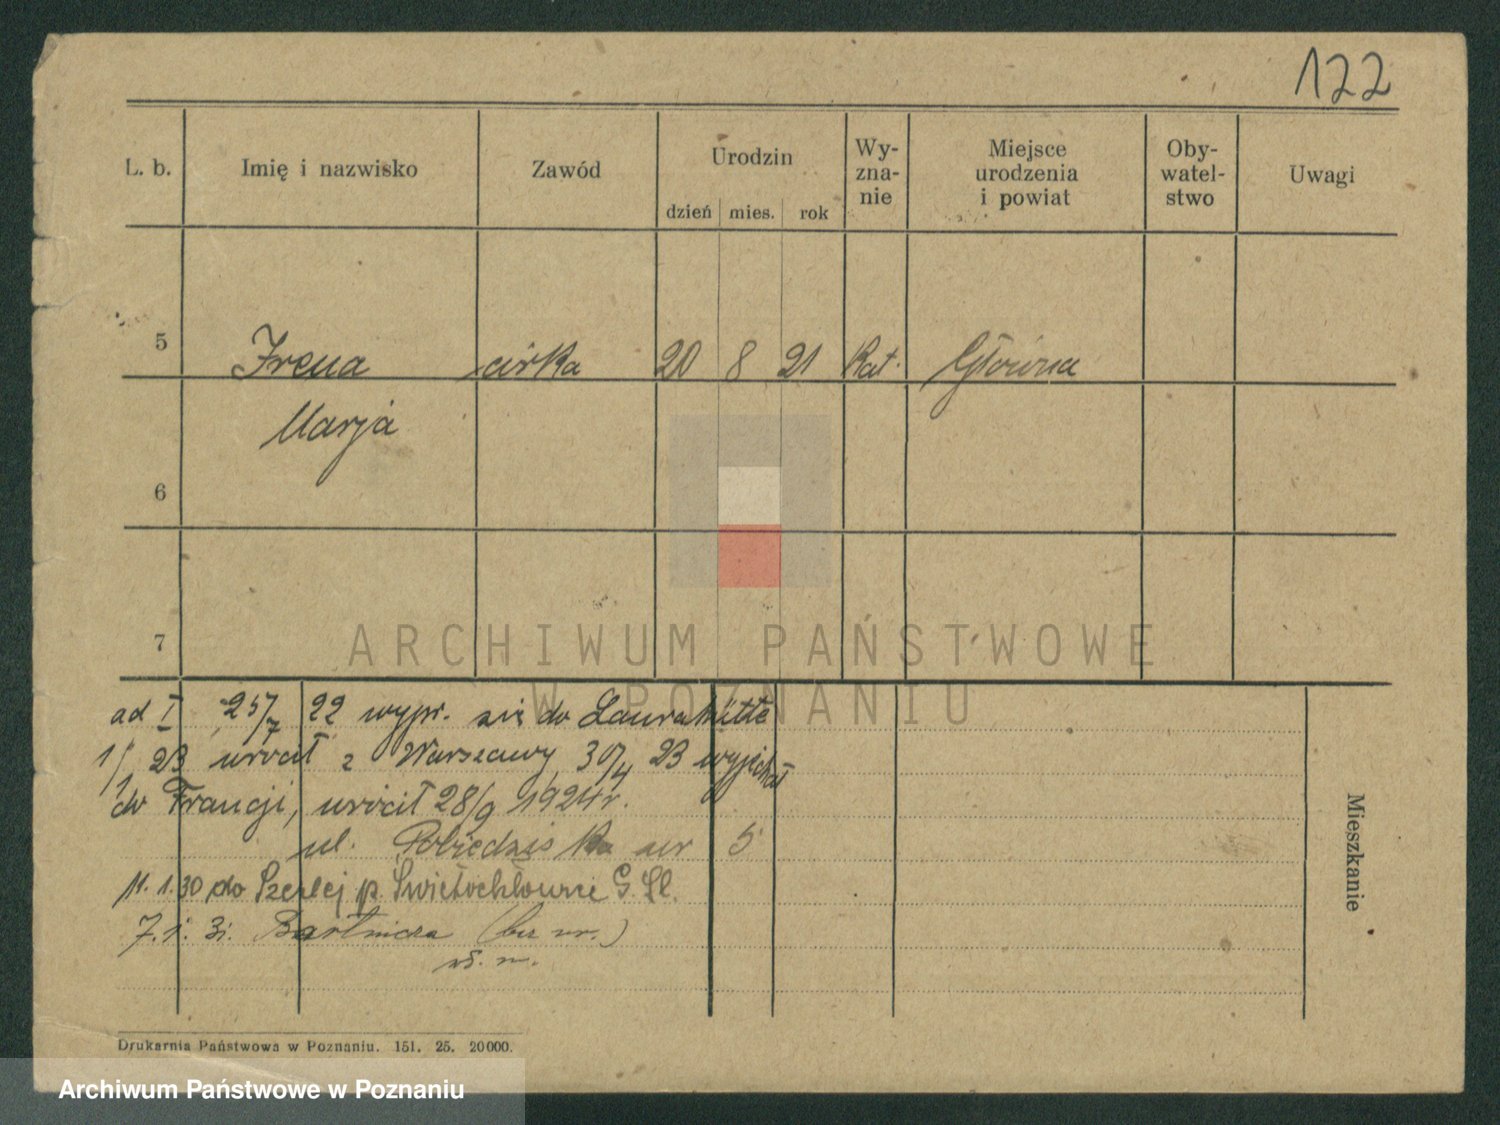 122
L. b. Imię i nazwisko Zawód Urodzin Wy-zna-nie Miejsce urodzenia i powiat Oby-watel-stwo Uwagi
dzień mies. rok
5 Irena córka 20 8 21 Kat. Główna
Marja
6
7
ARCHIWUM PAŃSTWOWE
W POZNANIU
ad I 25/7 22 wypr. się do Laurahütte
1/1 23 wrócił z Warszawy 30/4 23 wyjechał
do Francji, wrócił 28/9 1924 r.
ul. Pobiedziska nr 5
11. 1. 30 do Szarlej p. Świętochłowice G. Śl.
7. 1. 31. Bartnicza (bez nr.)
Mieszkanie
Drukarnia Państwowa w Poznaniu. 151. 25. 20000.
Archiwum Państwowe w Poznaniu